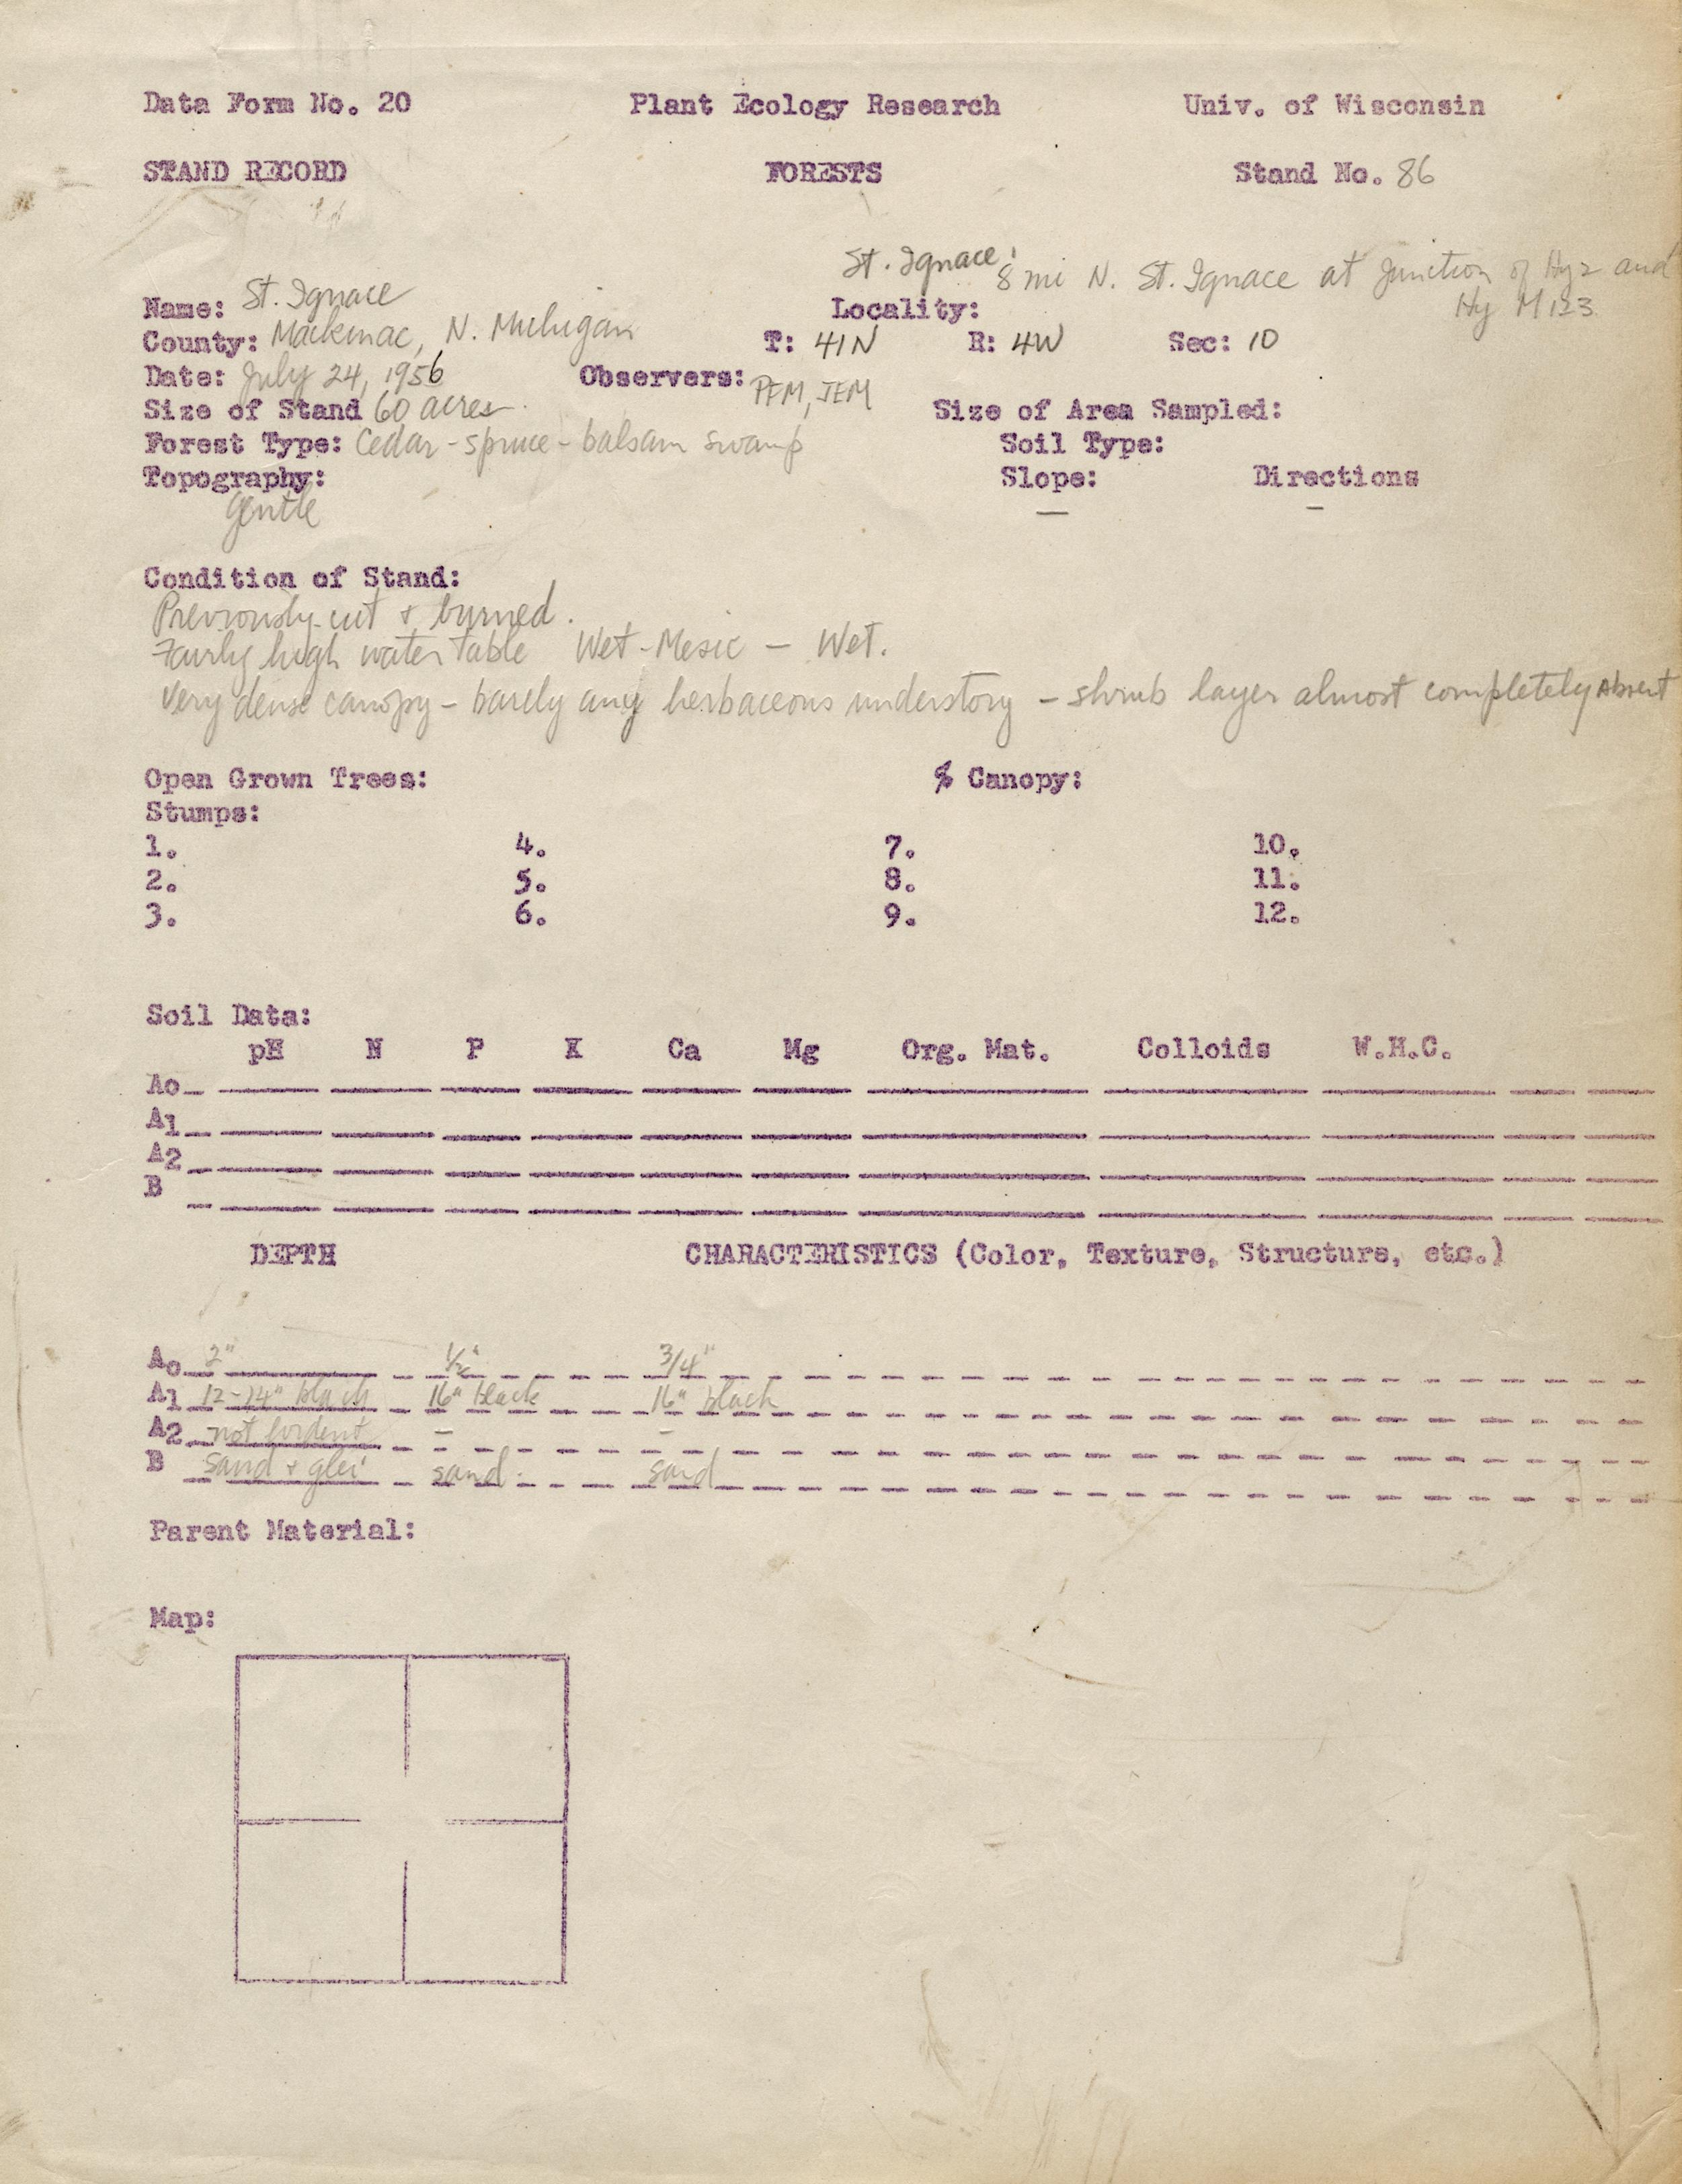 Data Form No. 20 Plant Ecology Research Univ. of Wisconsin
STAND RECORD FORESTS Stand No. 86
St. Ignace: 8 mi N. St. Ignace at Junction of Hy 2 and
Name: St. Ignace Locality: Hy M 123
County: Mackinac, N. Michigan T: 41N R: 4W Sec: 10
Date: July 24, 1956 Observers: PFM, JEM
Size of Stand 60 acres Size of Area Sampled:
Forest Type: Cedar - spruce - balsam swamp Soil Type:
Topography: Slope: Directions
gentle — –
Condition of Stand:
Previously cut + burned.
Fairly high water table Wet-Mesic — Wet.
Very dense canopy - barely any herbaceous understory - shrub layer almost completely Absent
Open Grown Trees: % Canopy:
Stumps:
1. 4. 7. 10.
2. 5. 8. 11.
3. 6. 9. 12.
Soil Data:
pH N P K Ca Mg Org. Mat. Colloids W.H.C.
Ao
A1
A2
B
DEPTH CHARACTERISTICS (Color, Texture, Structure, etc.)
Ao 2" 1/2" 3/4"
A1 12-14" black 16" black 16" black
A2 not evident – –
B Sand + glei sand. sand
Parent Material:
Map: